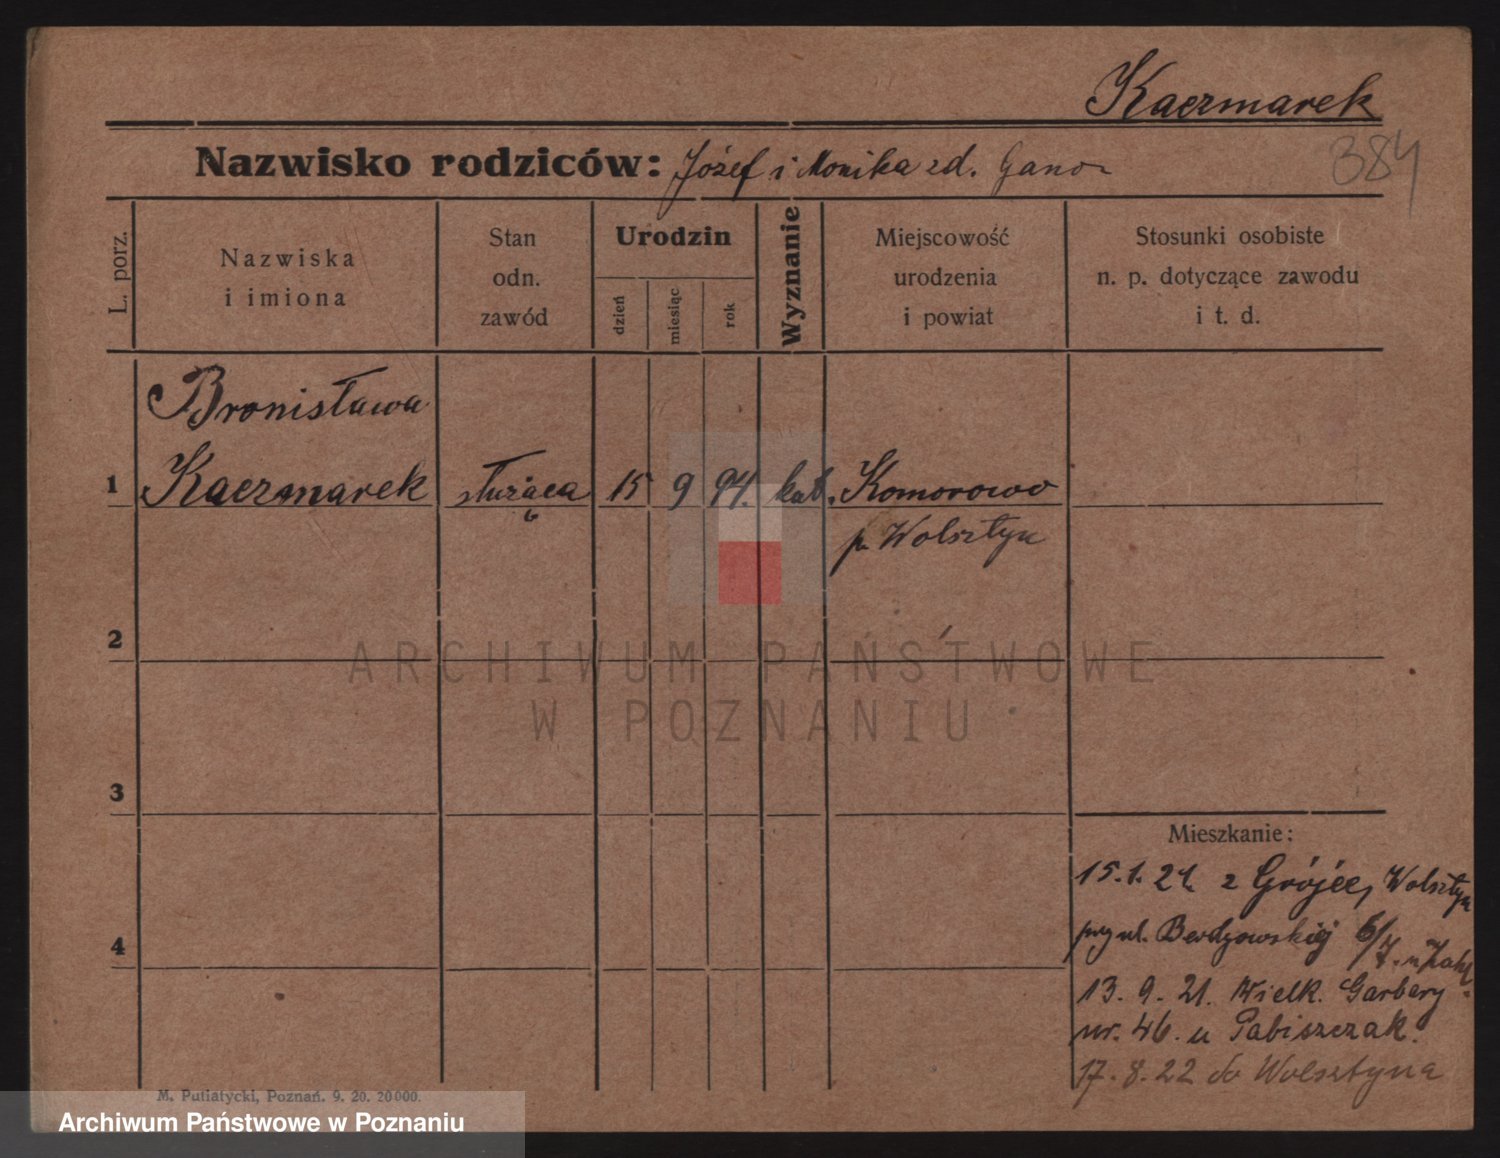 Kaczmarek
384
Nazwisko rodziców: Józef i Monika zd.
L. porz.
Nazwiska
i imiona
Stan
odn.
zawód
Urodzin
dzień
miesiąc
rok
Wyznanie
Miejscowość
urodzenia
i powiat
Stosunki osobiste
n. p. dotyczące zawodu
i t. d.
Bronisława
1 Kaczmarek służąca 15 9 94. kat. Komorowo
p. Wolsztyn
2
ARCHIWUM PAŃSTWOWE
W POZNANIU
3
Mieszkanie:
15.1.21. z Grójec, Wolsztyn
przy ul.
4
13.9.21. Wielk. Garbary
nr. 46. u Pabiszczak.
17.8.22 do Wolsztyna
M. Putiatycki, Poznań. 9. 20. 20000.
Archiwum Państwowe w Poznaniu